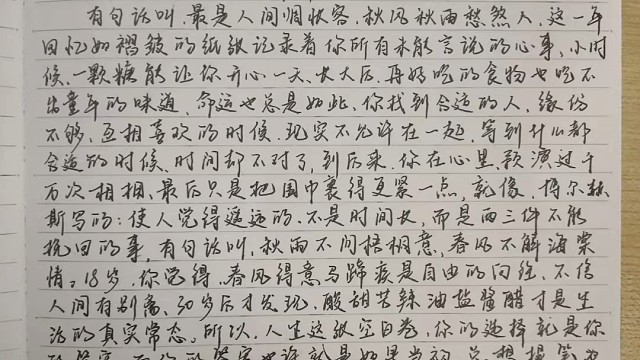 有句话叫、最是人间惆怅客、秋风秋雨愁煞人、这一年
回忆如褶皱的纸张记录着你所有未能言说的心事、小时
候、一颗糖能让你开心一天、长大后、再好吃的食物也吃不
出童年的味道、命运也总是如此、你找到合适的人、缘份
不够、互相喜欢的时候、现实不允许在一起、等到什么都
合适的时候、时间却不对了、到后来、你在心里预演过千
万次相拥、最后只是把围巾裹得更紧一点、就像、博尔赫
斯写的：使人觉得遥远的、不是时间长、而是两三件不能
挽回的事、有句话叫、秋雨不问梧桐意、春风不解海棠
情。18岁、你觉得、春风得意马蹄疾是自由的向往、不信
人间有别离、30岁后才发现、酸甜苦辣油盐酱醋才是生
活的真实常态。所以、人生这张空白卷、你的选择就是你